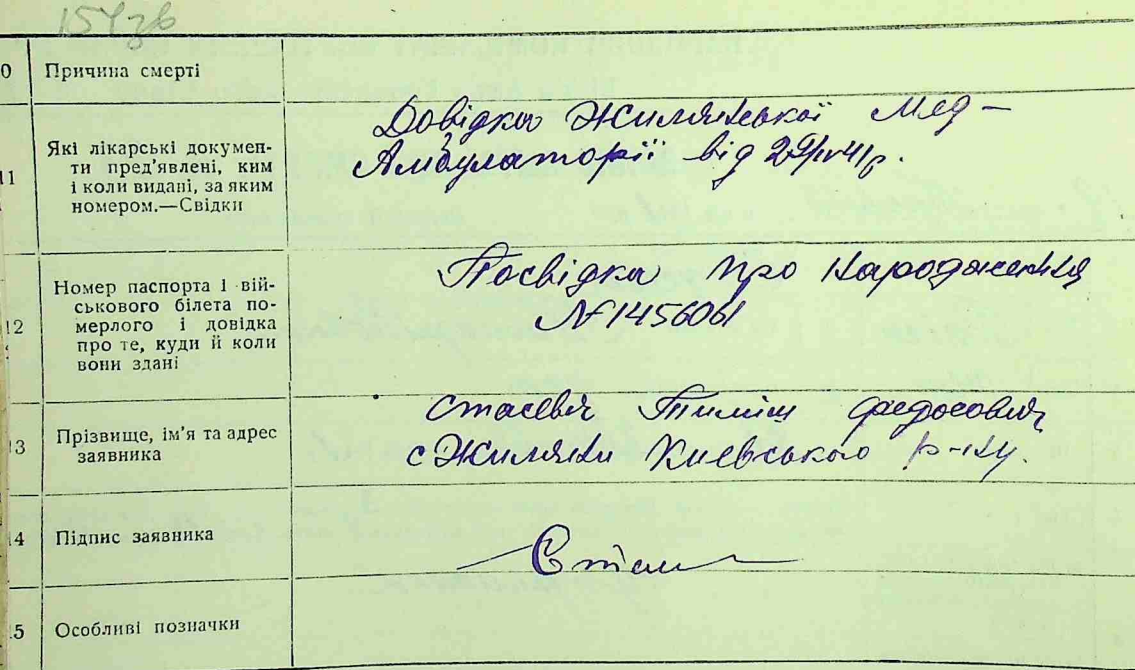 154зв
10 Причина смерті
11 Які лікарські докумен-
ти пред'явлені, ким
і коли видані, за яким
номером.—Свідки
Довідка Жилянської Мед-
Амбулаторії від 29/IV 41 р.
12 Номер паспорта і вій-
ськового білета по-
мерлого і довідка
про те, куди й коли
вони здані
Посвідка про народження
№1456061
13 Прізвище, ім'я та адрес
заявника
Стасевич Тиміш Федосович
с Жиляни Київського р-ну.
14 Підпис заявника
15 Особливі позначки